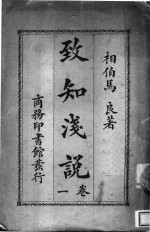 相伯馬良著
致知淺說
卷一
商務印書館發行